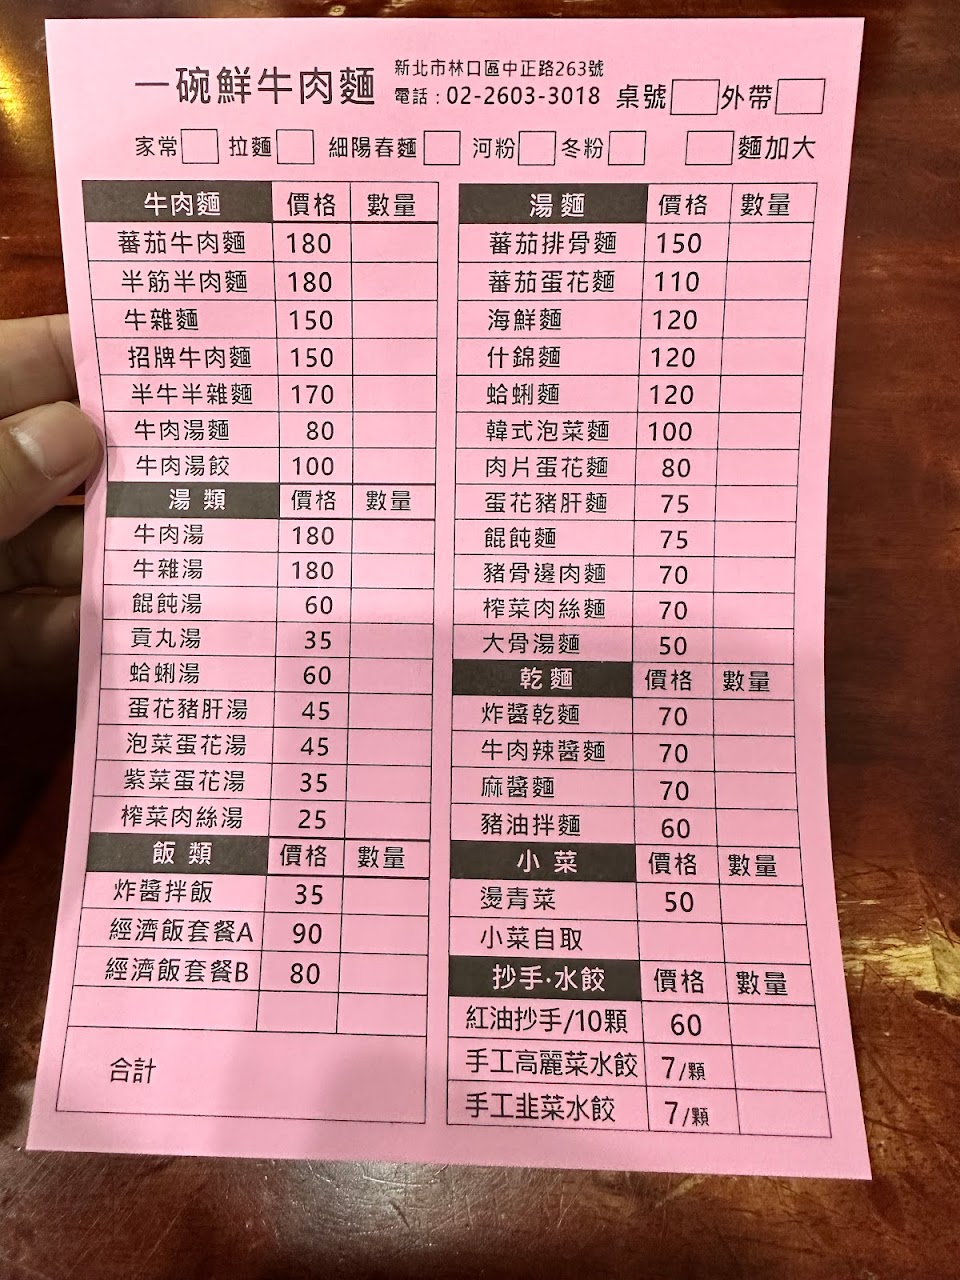 一碗鮮牛肉麵
新北市林口區中正路263號
電話：02-2603-3018
桌號 外帶
家常 拉麵 細陽春麵 河粉 冬粉 麵加大
牛肉麵 價格 數量
蕃茄牛肉麵 180
半筋半肉麵 180
牛雜麵 150
招牌牛肉麵 150
半牛半雜麵 170
牛肉湯麵 80
牛肉湯餃 100
湯類 價格 數量
牛肉湯 180
牛雜湯 180
餛飩湯 60
貢丸湯 35
蛤蜊湯 60
蛋花豬肝湯 45
泡菜蛋花湯 45
紫菜蛋花湯 35
榨菜肉絲湯 25
飯類 價格 數量
炸醬拌飯 35
經濟飯套餐A 90
經濟飯套餐B 80
合計
湯麵 價格 數量
蕃茄排骨麵 150
蕃茄蛋花麵 110
海鮮麵 120
什錦麵 120
蛤蜊麵 120
韓式泡菜麵 100
肉片蛋花麵 80
蛋花豬肝麵 75
餛飩麵 75
豬骨邊肉麵 70
榨菜肉絲麵 70
大骨湯麵 50
乾麵 價格 數量
炸醬乾麵 70
牛肉辣醬麵 70
麻醬麵 70
豬油拌麵 60
小菜 價格 數量
燙青菜 50
小菜自取
抄手·水餃 價格 數量
紅油抄手/10顆 60
手工高麗菜水餃 7/顆
手工韭菜水餃 7/顆